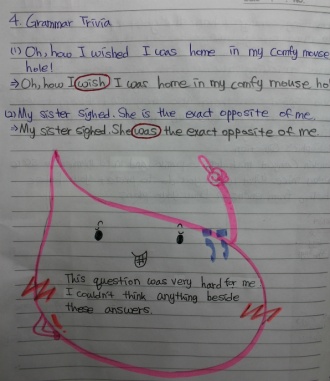 4. Grammar Trivia
(1) Oh, how I wished I was home in my comfy mouse
hole!
⇒ Oh, how I wish I was home in my comfy mouse ho
(2) My sister sighed. She is the exact opposite of me.
⇒ My sister sighed. She was the exact opposite of me.
This question was very hard for me
I couldn't think anything beside
these answers.